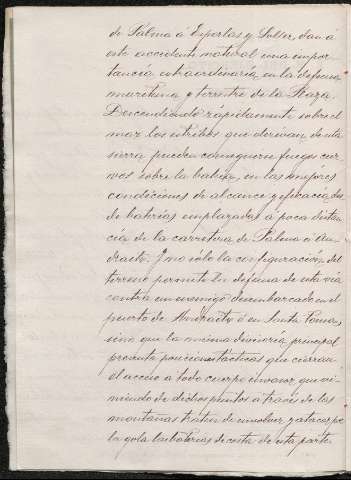 de Palma á Esporlas y Soller, dan á
este accidente natural una impor-
tancia extraordinaria, en la defensa
maritima y terrestre de la Plaza.
Descendiendo rápidamente sobre el
mar los estribos que derivan de esta
sierra pueden conseguirse fuegos cur-
vos sobre la bahia, en las mejores
condiciones de alcance y eficacia, des-
de baterias emplazadas á poca distan-
cia de la carretera de Palma á An-
draitx. Y no sólo la configuración del
terreno permite la defensa de esta via
contra un enemigo desembarcado en el
puerto de Andraitx ó en Santa Ponsa,
sino que la misma divisoria principal
presenta posiciones tácticas que cierran
el acceso á todo cuerpo invasor que vi-
niendo de dichos puntos á través de las
montañas traten de envolver y atacar po
la gola las baterias de costa de esta parte.